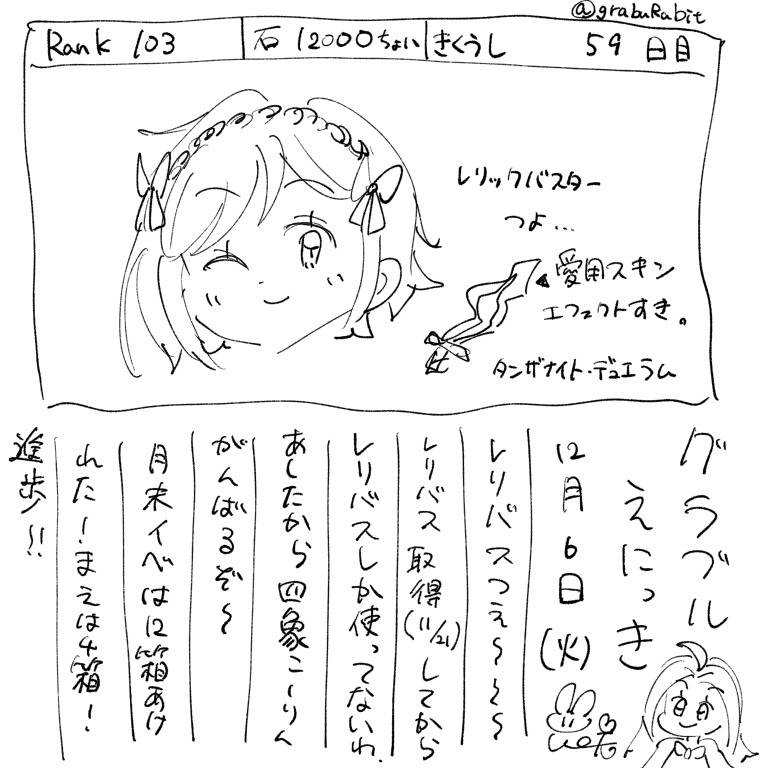 @grabuRabit
Rank 103
石 12000ちょい
きくうし
59日目
レリックバスター
つよ…
愛用スキン
エフェクトすき。
タンザナイト・デュエラム
グラブル
えにっき
12月6日(火)
レリバスつえ〜〜〜
レリバス取得(11/21)してから
レリバスしか使ってないわ.
あしたから四象こ〜りん
がんばるぞ〜
月末イベは12箱あけ
れた！まえは4箱！
進歩〜!!